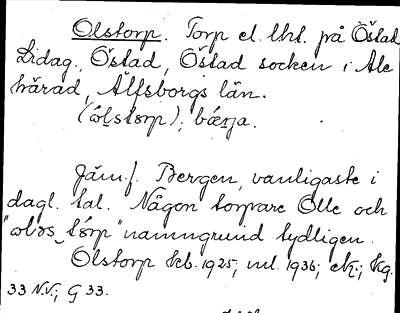 Olstorp. Torp el. lht. på Östad
Lidag., Östad, Östad socken i Ale
härad, Älfsborgs län.
(ω̂lstωrp); bǽrja.
Jäm.f. Bergen, vanligaste i
dagl. tal. Någon torpare Olle och
"ωləs tórp" namngrund tydligen.
Olstorp Kb. 1925; ml. 1936; ek.; Kg.
33 N.V.; G 33.